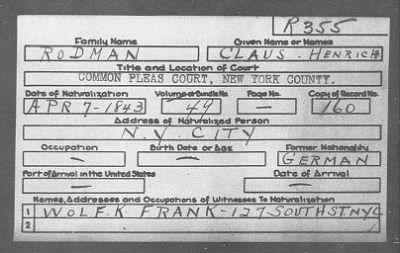 R355
Family Name Given Name or Names
RODMAN CLAUS. HENRICH
Title and Location of Court
COMMON PLEAS COURT, NEW YORK COUNTY.
Date of Naturalization Volume or Bundle No. Page No. Copy of Record No.
APR 7-1843 49 — 160
Address of Naturalized Person
N.Y. CITY
Occupation Birth Date or Age Former Nationality
— — GERMAN
Port of Arrival in the United States Date of Arrival
— —
Names, Addresses and Occupations of Witnesses To Naturalization
1 WOLF.K FRANK-127 SOUTH ST. NYC
2